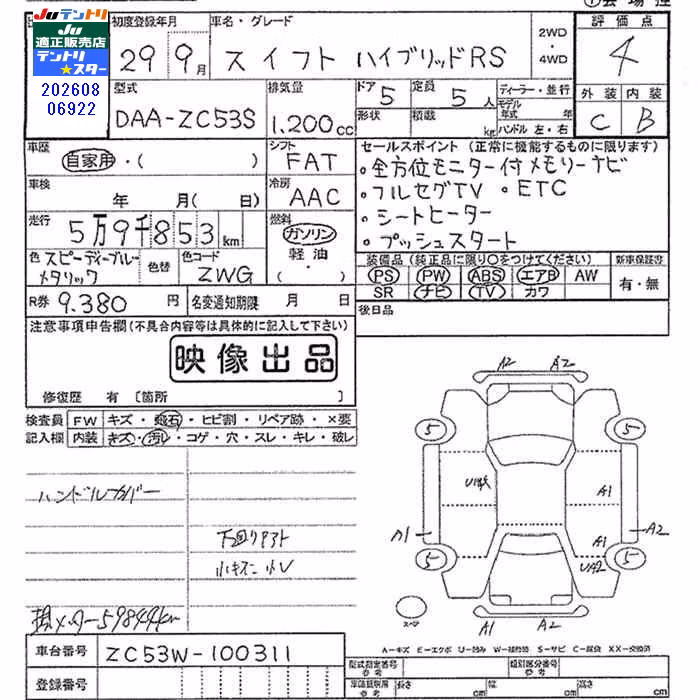 JUテントリ
JU
適正販売店
テントリ
★スター
202608
06922
初度登録年月
29 9月
車名・グレード
スイフト ハイブリッドRS
2WD
・
4WD
評価点
4
型式
DAA-ZC53S
排気量
1,200cc
ドア 5
形状
定員 5人
積載 kg
ディーラー・並行
モデル年式 年
ハンドル 左・右
外装 内装
C B
車歴
自家用・( )
シフト
FAT
車検
年 月( 日)
冷房
AAC
走行
5万9千853km
燃料
ガソリン
軽油
・( )
色 スピーディーブルーメタリック
色替
色コード
ZWG
R券 9.380円
名変通知期限 月 日
セールスポイント(正常に機能するものに限ります)
・全方位モニター付メモリーナビ
・フルセグTV ・ETC
・シートヒーター
・プッシュスタート
装備品(純正品に限り○をつけてください)
新車保証書
PS PW ABS エアB AW
SR ナビ TV カワ
有・無
後日品
注意事項申告欄(不具合内容等は具体的に記入して下さい)
映像出品
修復歴 有〔箇所 〕
検査員記入欄
FW キズ・飛石・ヒビ割・リペア跡・×要
内装 キズ・汚レ・コゲ・穴・スレ・キレ・破レ
ハンドルカバー
下回りサビ
小キズ 小U
59844km
A2 A2
5 5
A1
A1 A1 A2
UA2
5 5
スペア
A1 A2
A-キズ E-エクボ U-凹み W-補修跡 S-サビ C-腐蝕 XX-交換済
車台番号 ZC53W-100311
登録番号
型式指定番号 参考
類別区分番号 参考
車両諸元 参考 長さ cm 幅 cm 高さ cm